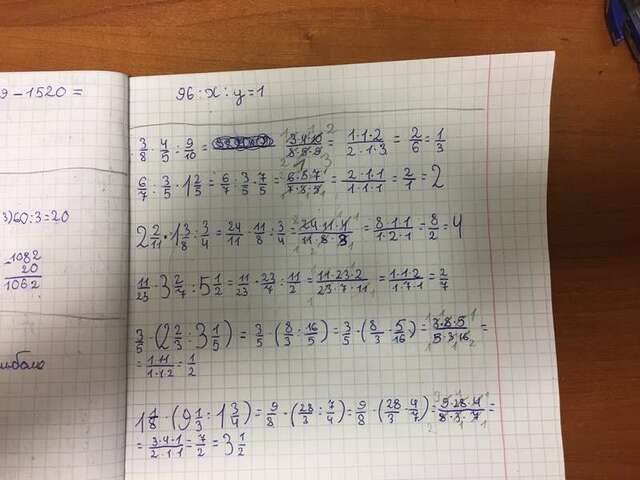 9-1520=
3)60:3=20
-1082
20
1062
96:x:y=1
3/8 · 4/5 : 9/10 = 3·4·10/8·5·9 = 1·1·2/2·1·3 = 2/6 = 1/3
6/7 : 3/5 · 1 2/5 = 6/7 : 3/5 · 7/5 = 6·5·7/7·3·5 = 2·1·1/1·1·1 = 2/1 = 2
2 2/11 · 1 3/8 : 3/4 = 24/11 · 11/8 : 3/4 = 24·11·4/11·8·3 = 8·1·1/1·2·1 = 8/2 = 4
11/23 · 3 2/7 : 5 1/2 = 11/23 · 23/7 : 11/2 = 11·23·2/23·7·11 = 1·1·2/1·7·1 = 2/7
3/5 · (2 2/3 : 3 1/5) = 3/5 · (8/3 : 16/5) = 3/5 · (8/3 · 5/16) = 3·8·5/5·3·16 =
= 1·1·1/1·1·2 = 1/2
1 1/8 · (9 1/3 : 1 3/4) = 9/8 · (28/3 : 7/4) = 9/8 · (28/3 · 4/7) = 9·28·4/8·3·7 =
= 3·4·1/2·1·1 = 7/2 = 3 1/2